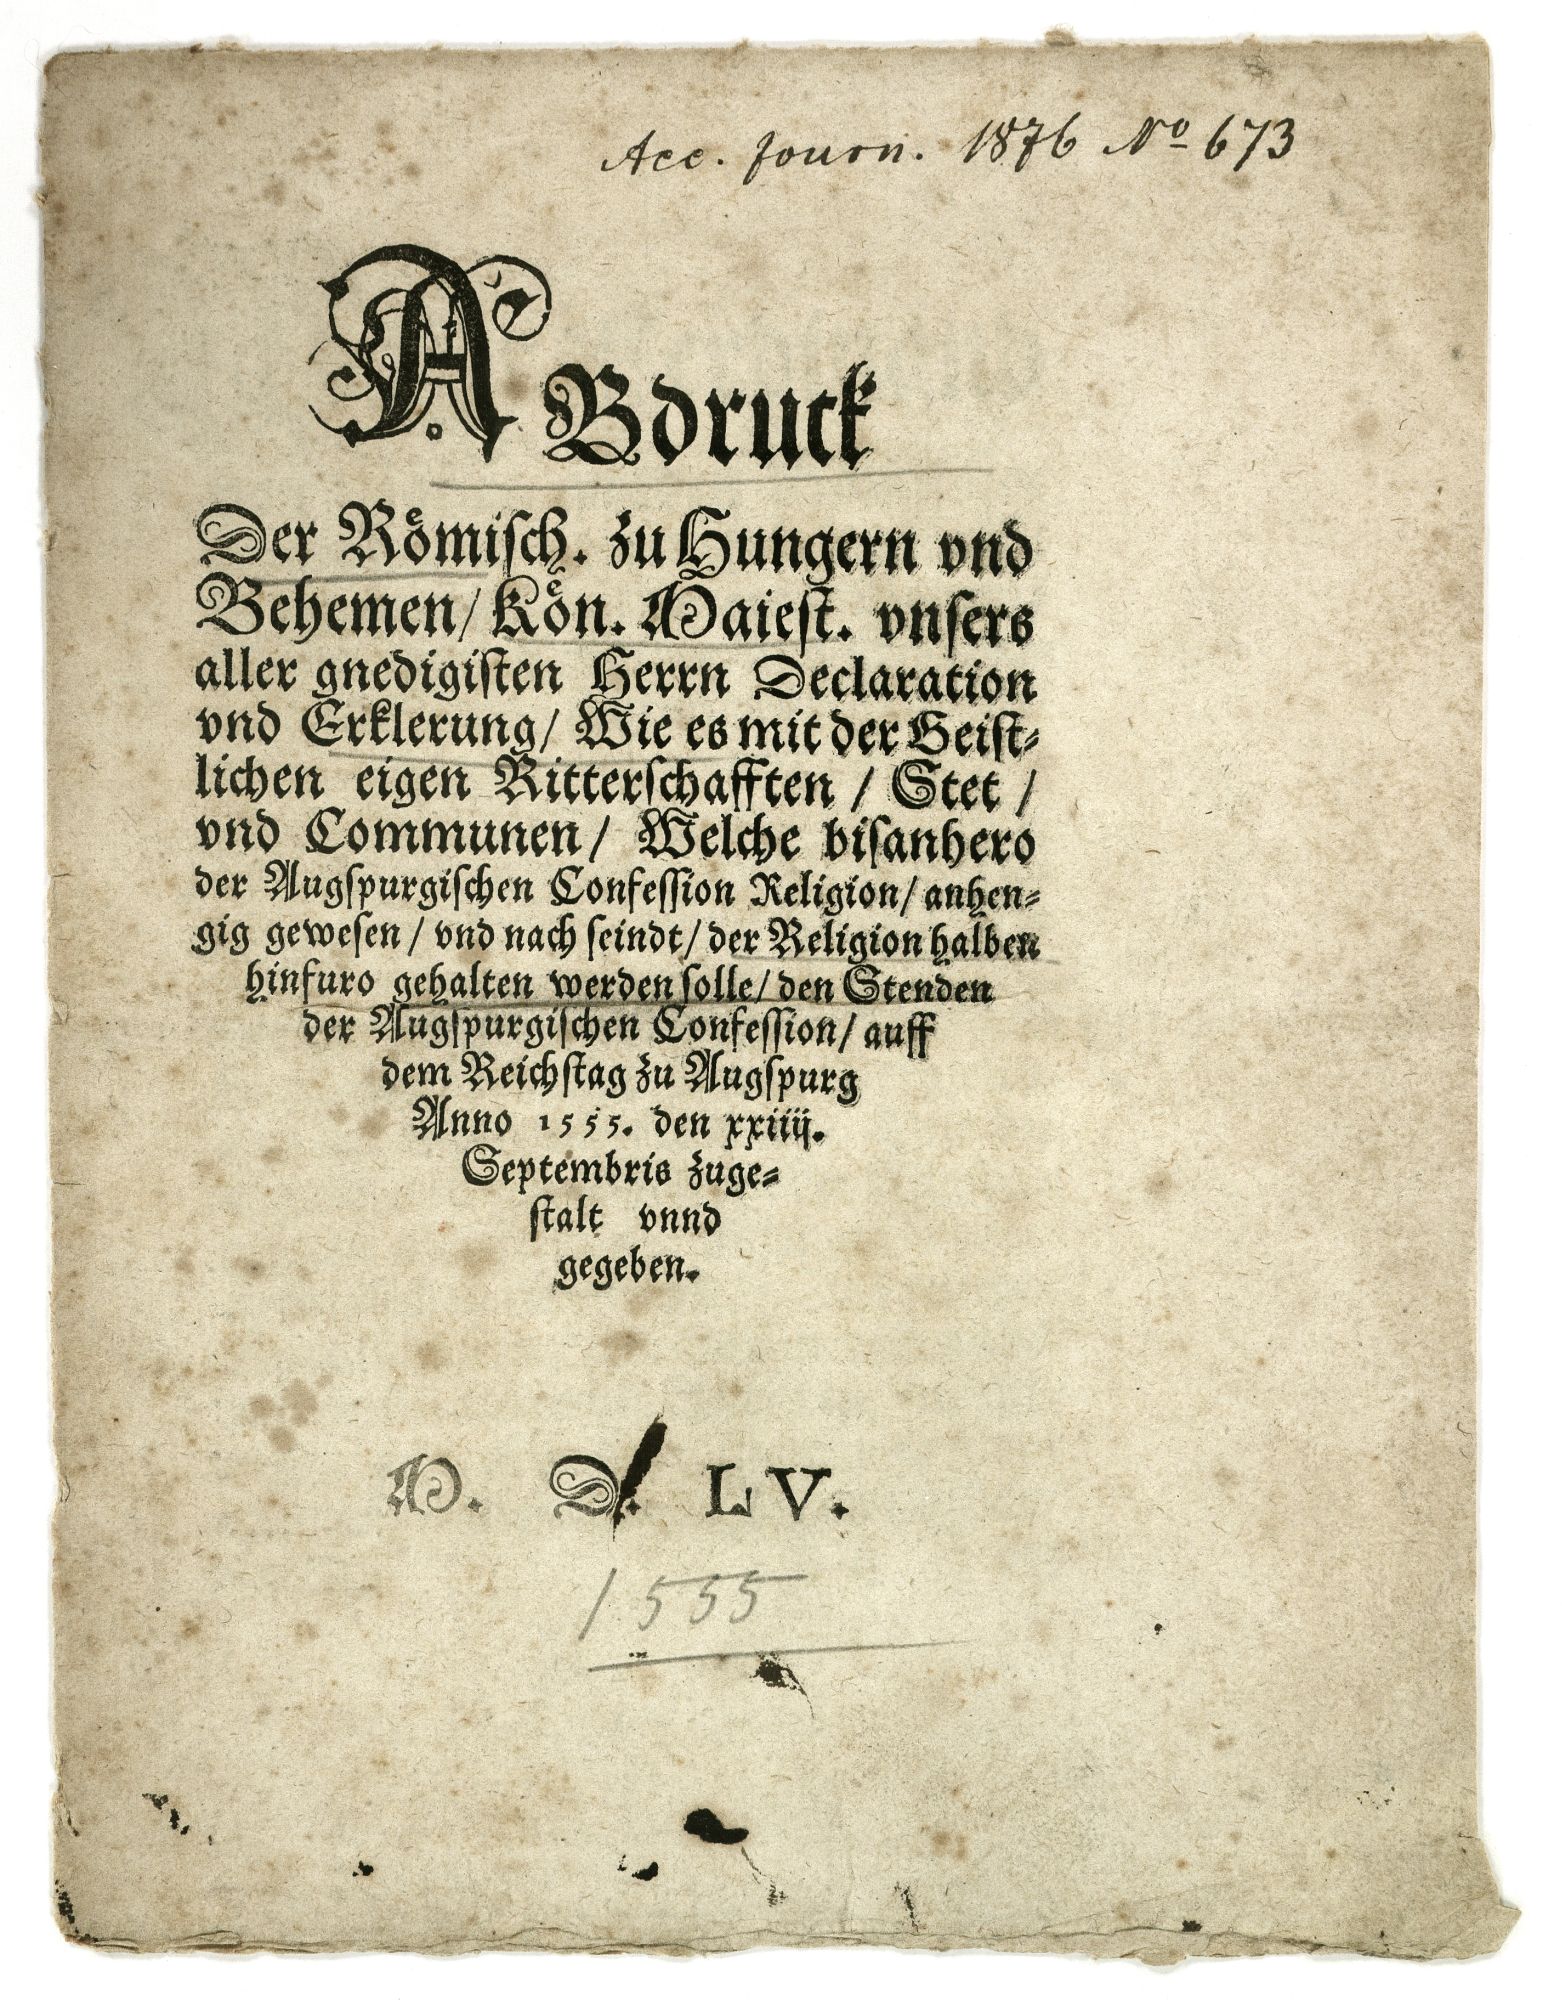 Acc. Journ. 1876 No 673
ABdruck
Der Roͤmisch. zu Hungern vnd
Behemen/ Koͤn. Maiest. vnsers
aller gnedigisten Herrn Declaration
vnd Erklerung/ Wie es mit der Geist-
lichen eigen Ritterschafften / Stet /
vnd Communen/ Welche bisanhero
der Augspurgischen Confession Religion/ anhen-
gig gewesen / vnd nach seindt/ der Religion halben
hinfuro gehalten werden solle/ den Stenden
der Augspurgischen Confession/ auff
dem Reichstag zu Augspurg
Anno 1555. den xxiiij.
Septembris zuge-
stalt vnnd
gegeben.
M. D. LV.
1555